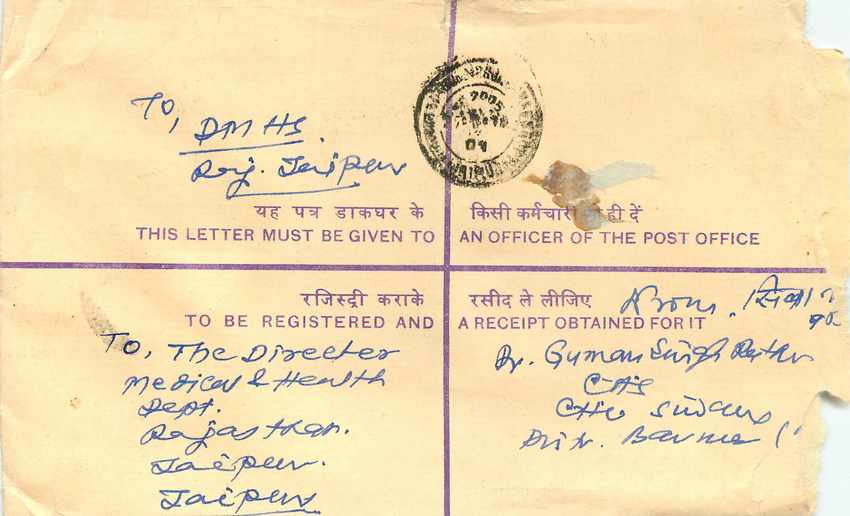 To,
DMHS
Raj. Jaipur
यह पत्र डाकघर के किसी कर्मचारी ही दें
THIS LETTER MUST BE GIVEN TO AN OFFICER OF THE POST OFFICE
रजिस्ट्री कराके रसीद ले लीजिए
TO BE REGISTERED AND A RECEIPT OBTAINED FOR IT
To, The Director
Medical & Health
Dept.
Rajasthan.
Jaipur.
Jaipur
From.
Dr. Guman Singh
CHC
Distr. Barmer